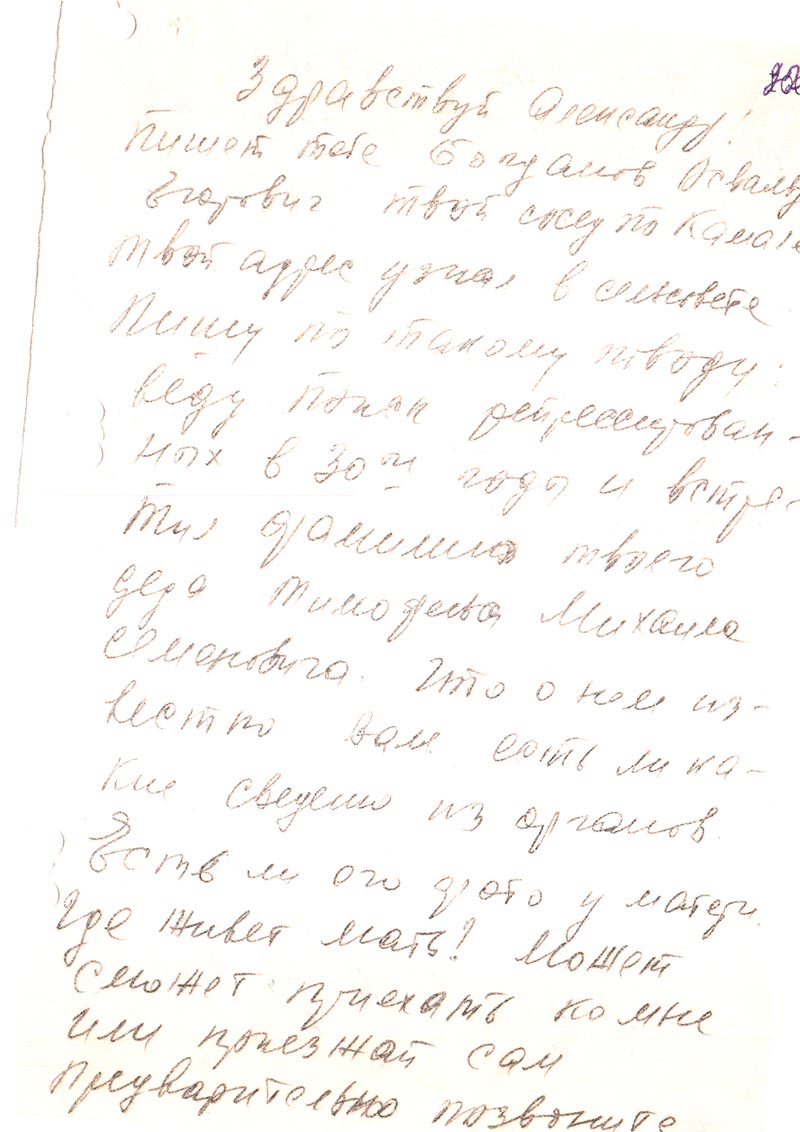 Здравствуй Александр!
Пишет тебе Богданов Освальд
Егорович твой сосед по
твой адрес узнал в сельсовете
Пишу по такому поводу:
веду поиск репрессирован-
ных в 30ые годы и встре-
тил фамилию твоего
деда Тимофеева Михаила
Семеновича. Что о нем из-
вестно Вам есть ли ка-
кие сведению из органов.
Есть ли его фото у матери.
Где живет мать? Может
сможет приехать ко мне
или приезжай сам
предварительно позвоните